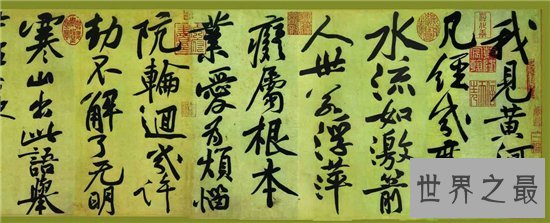 我見黃河
凡經幾度
水流如激箭
人世若浮萍
癡屬根本
業愛為煩惱
阬輪迴幾許
劫不解了无明
寒山出此語舉
世界之最